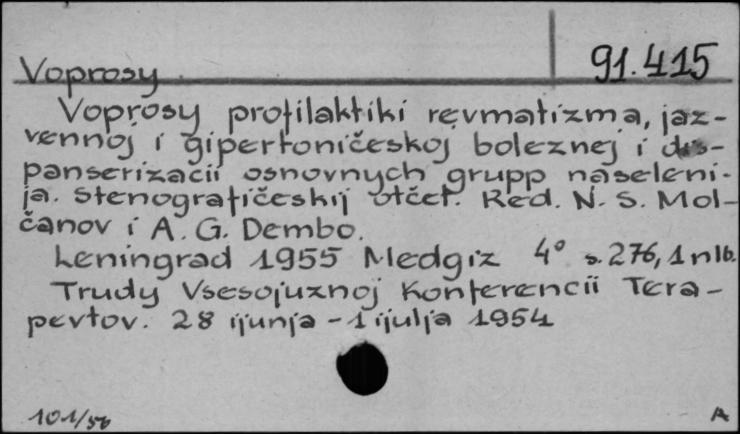 91.415
Voprosy
Voprosy profilaktiki revmatizma, jaz-
vennoj i gipertoničeskoj boleznej i dis-
panserizacii osnovnych grupp naseleni-
ja. Stenografičeskij otčet. Red. N. S. Mol-
čanov i A. G. Dembo.
Leningrad 1955 Medgiz 4° s. 276, 1 nlb.
Trudy Vsesojuznoj Konferencii Tera-
pevtov. 28 ijunja - 1 ijulja 1954
101/56 A